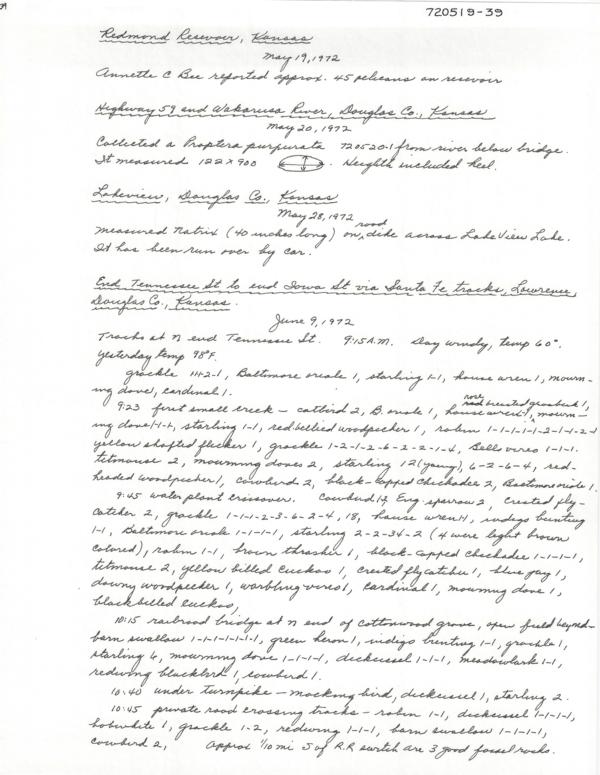 720519-39
Redmond Resevoir, Kansas
May 19, 1972
Annette C Bee reported approx. 45 pelicans on resevoir
Highway 59 and Wakarusa River, Douglas Co., Kansas
May 20, 1972
Collected a Proptera purpurata 720520-1 from river below bridge.
It measured 122 x 900 . Heighth included keel.
Lakeview, Douglas Co., Kansas
May 28, 1972
measured Natrix (40 inches long) on road dike across Lake View Lake.
It has been run over by car.
End Tennessee St to end Iowa St via Santa Fe tracks, Lawrence,
Douglas Co., Kansas.
June 9, 1972
Tracks at N end Tennessee St. 9:15 A.M. Day windy, temp 60°.
yesterday temp 98°F.
grackle 1-1-2-1, Baltimore oriole 1, starling 1-1, house wren 1, mourn-
ing dove, cardinal 1.
9:23 first small creek - catbird 2, B. oriole 1, house wren 1, rose breasted grosbeak 1, mourn-
ing dove 1-1-1, starling 1-1, red bellied woodpecker 1, robin 1-1-1-1-1-2-1-1-2-1
yellow shafted flicker 1, grackle 1-2-1-2-6-2-2-1-4, Bells vireo 1-1-1.
titmouse 2, mourning doves 2, starling 12 (young), 6-2-6-4, red-
headed woodpecker 1, cowbird 2, black-capped chickadee 2, Baltimore oriole 1.
9:45 water plant crossover. Cowbird 1-2, Eng. sparrow 2, crested fly-
catcher 2, grackle 1-1-1-2-3-6-2-4, 18, house wren 1-1, indigo bunting
1-1, Baltimore oriole 1-1-1-1, starling 2-2-34-2 (4 were light brown
colored), robin 1-1, brown thrasher 1, black-capped chickadee 1-1-1-1,
titmouse 2, yellow billed cuckoo 1, crested flycatcher 1, blue jay 1,
downy woodpecker 1, warbling vireo 1, cardinal 1, mourning dove 1,
black billed cuckoo,
10:15 railroad bridge at N end of cottonwood grove, open field beyond-
barn swallow 1-1-1-1-1-1-1, green heron 1, indigo bunting 1-1, grackle 1,
starling 6, mourning dove 1-1-1-1, dickcissel 1-1-1, meadowlark 1-1,
redwing blackbird 1, cowbird 1.
10:40 under turnpike - mocking bird, dickcissel 1, starling 2.
10:45 private road crossing tracks - robin 1-1, dickcissel 1-1-1-1,
bobwhite 1, grackle 1-2, redwing 1-1-1, barn swallow 1-1-1-1,
cowbird 2, Approx 1/10 mi S of R.R switch are 3 good fossel rocks.